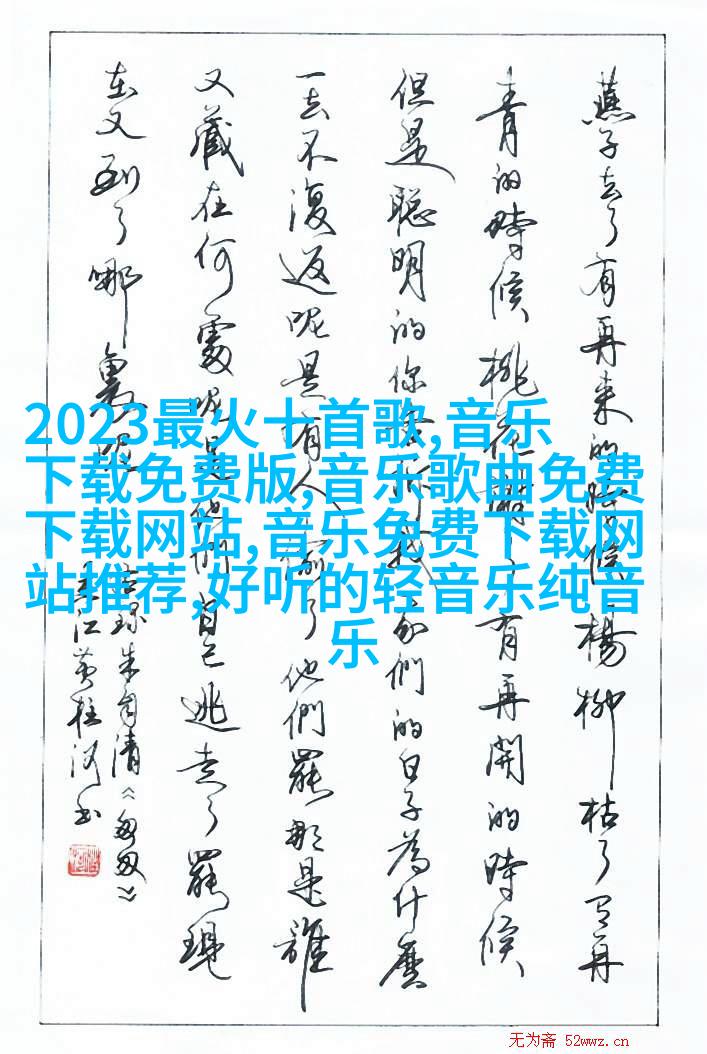 燕子去了有再来的時候楊柳枯了有再
青的時候桃花謝了有再開的時候
但是聪明的你告訴我我們的日子為什麼
一去不復返呢是有人偷了他們罷那是誰
又藏在何處呢是他們自己逃走了罷現
在又到了哪裏呢
朱自清《匆匆》
江黄桂河书
2023最火十首歌,音乐
下载免费版,音乐歌曲免费
下载网站,音乐免费下载网
站推荐,好听的轻音乐纯音
乐
无为斋 52wwz.cn